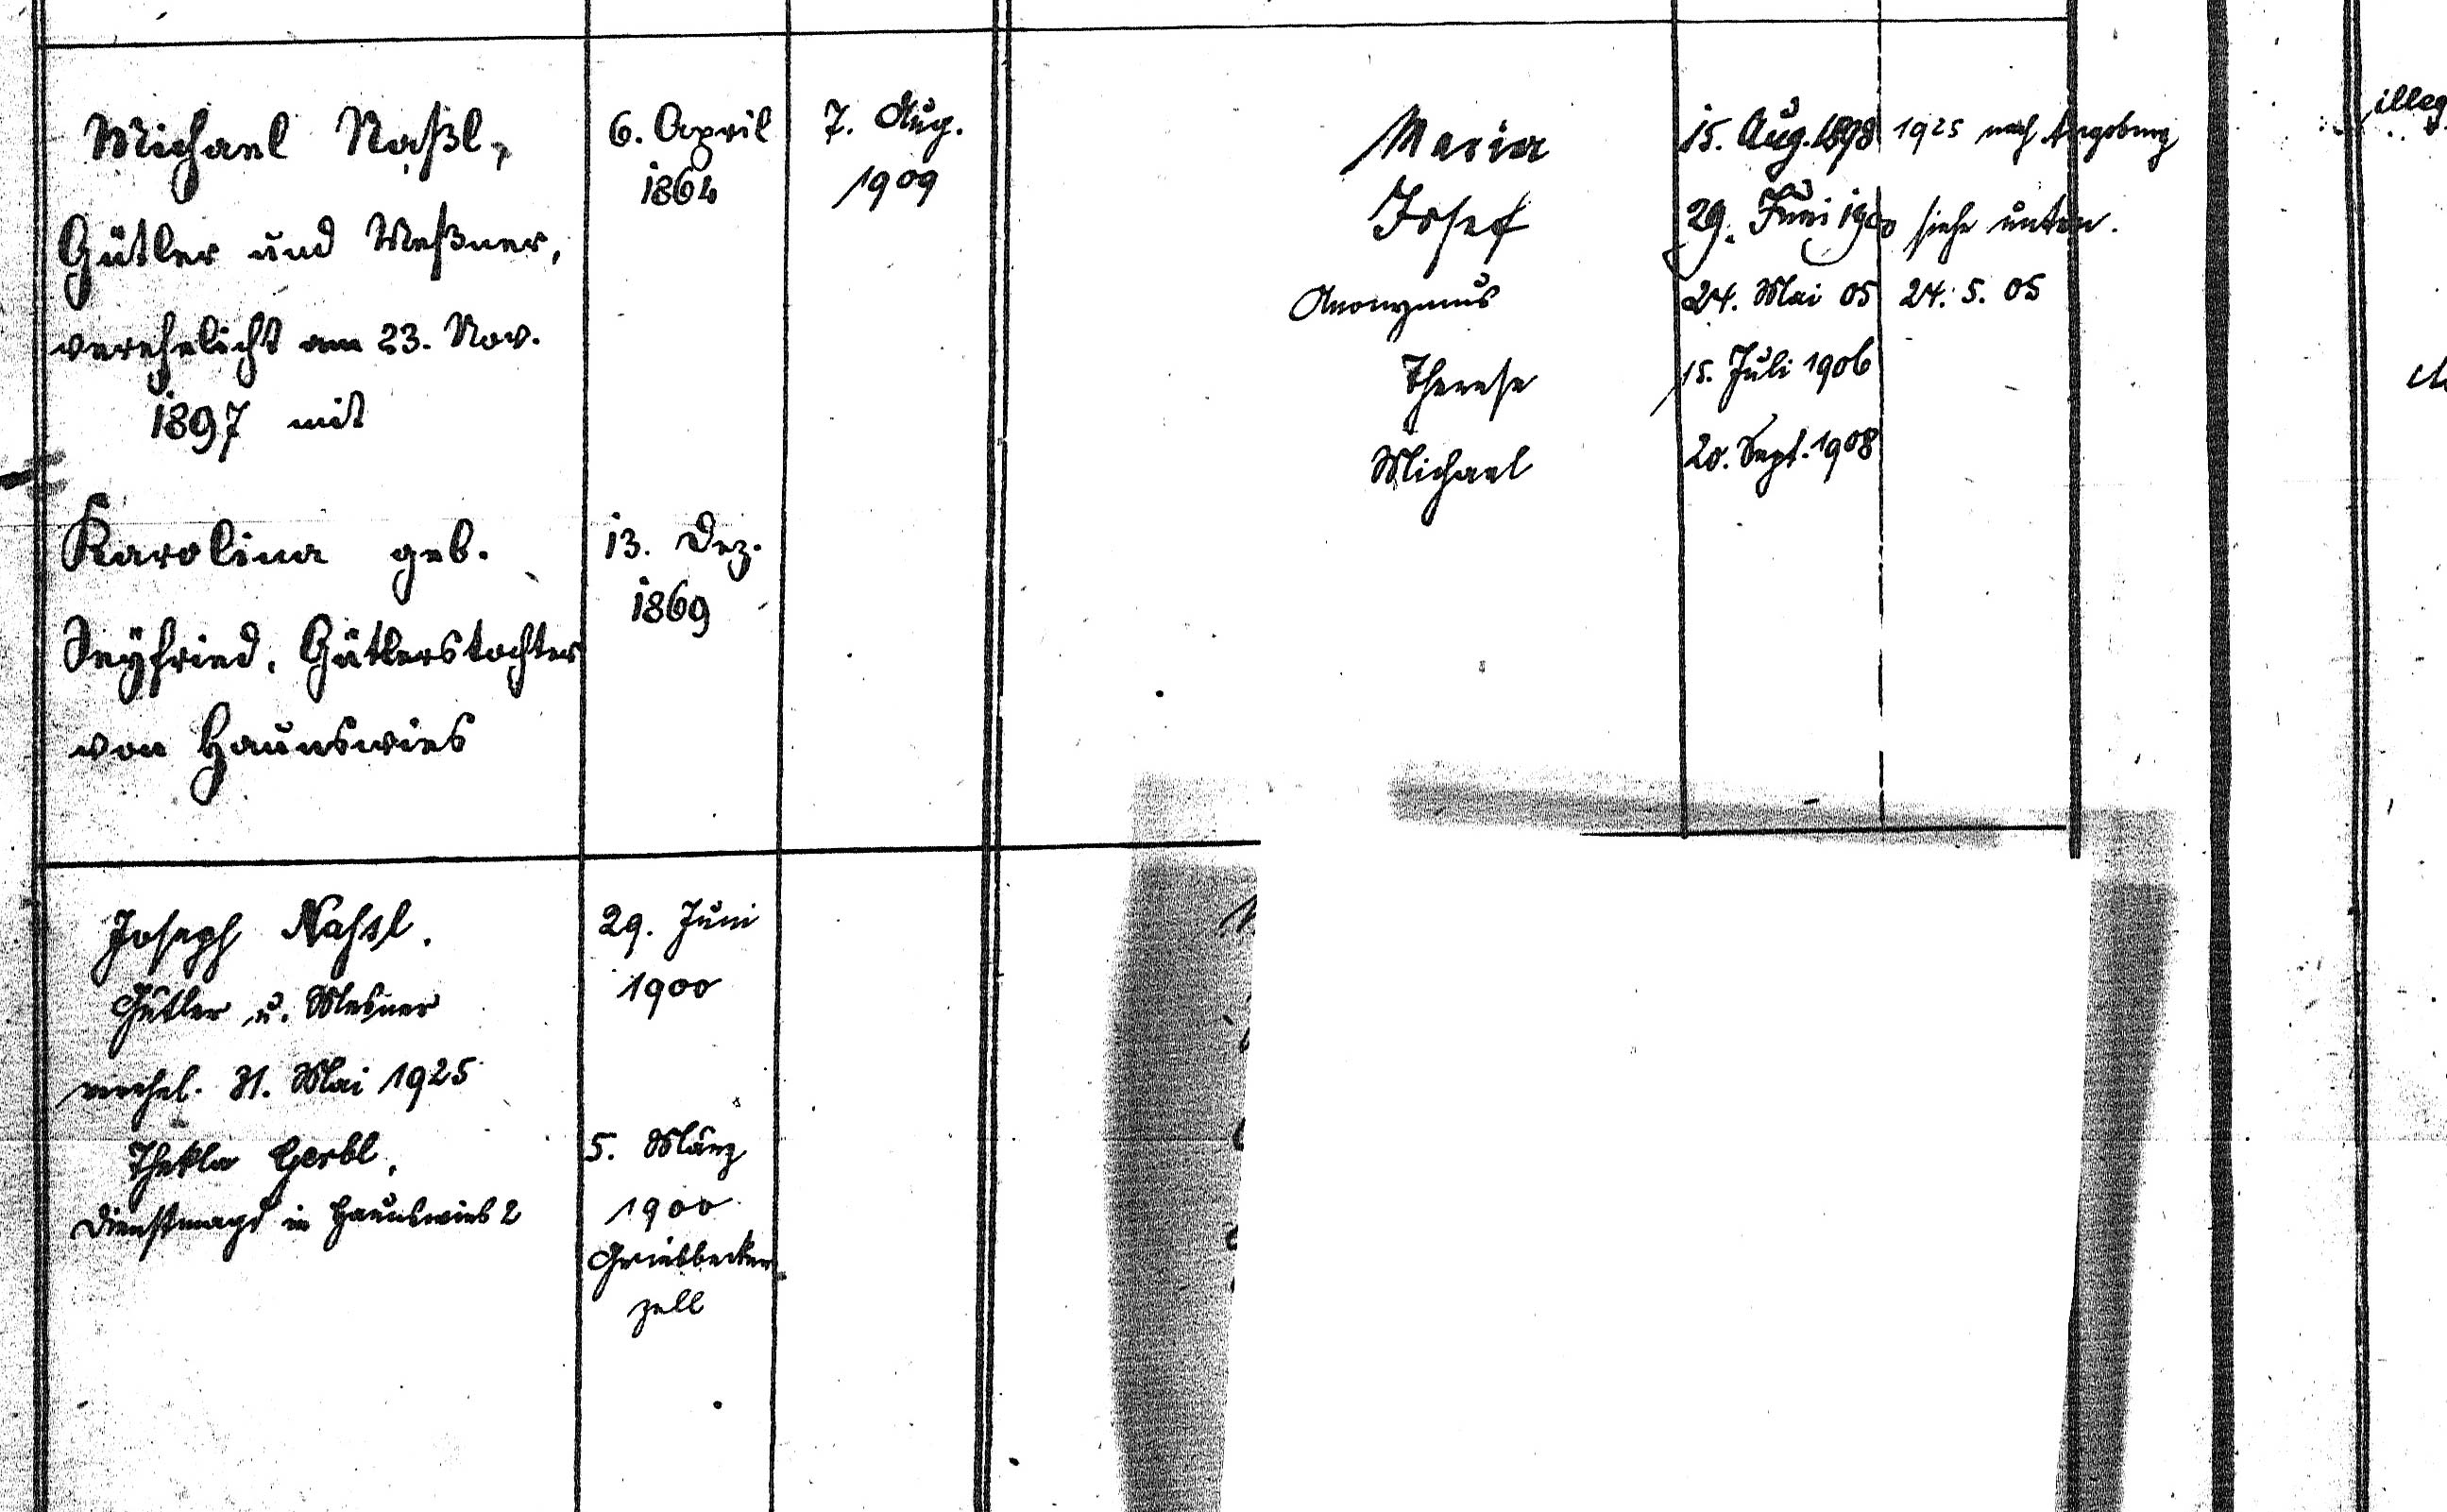 Michael Naßl,
Gütler und Meßner,
verehelicht am 23. Nov.
1897 mit
Karolina geb.
Seyfried, Gütlerstochter
von Haunswies
6. April
1864
7. Aug.
1909
13. Dez.
1869
Maria 15. Aug. 1898 1925 nach Augsburg
Josef 29. Juni 1900 siehe unten.
Anonymus 24. Mai 05 24. 5. 05
Therese 15. Juli 1906
Michael 20. Sept. 1908
illeg
Joseph Nassl.
Gütler u. Mesner
verehel. 31. Mai 1925
Thekla Gerbl,
Dienstmagd in Haunswies 2
29. Juni
1900
5. März
1900
Griesbecker-
zell